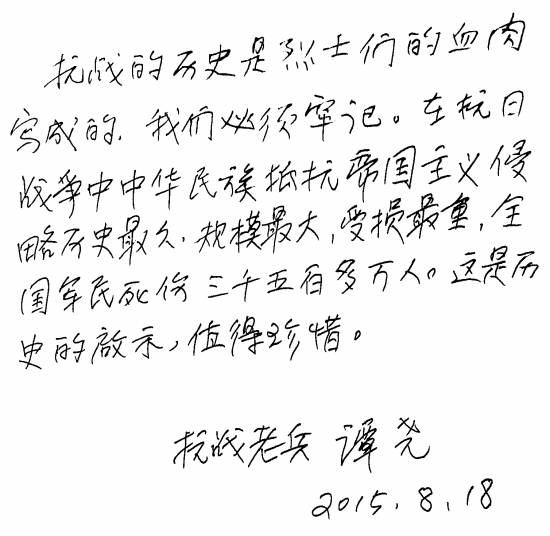 抗战的历史是烈士们的血肉
写成的，我们必须牢记。在抗日
战争中中华民族抵抗帝国主义侵
略历史最久，规模最大，受损最重，全
国军民死伤三千五百多万人。这是历
史的启示，值得珍惜。
抗战老兵 谭尧
2015.8.18